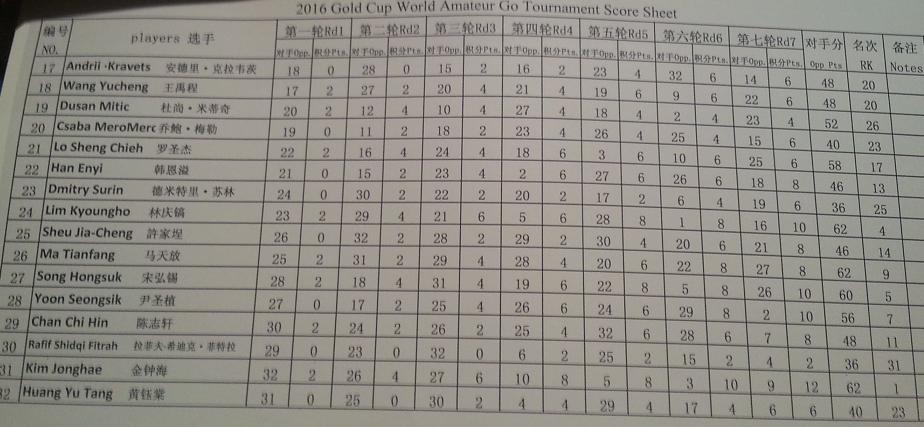 2016 Gold Cup World Amateur Go Tournament Score Sheet
编号 players 选手 第一轮Rd1 第二轮Rd2 第三轮Rd3 第四轮Rd4 第五轮Rd5 第六轮Rd6 第七轮Rd7 对手分 名次 备注
NO. 对手Opp. 积分Pts. 对手Opp. 积分Pts. 对手Opp. 积分Pts. 对手Opp. 积分Pts. 对手Opp. 积分Pts. 对手Opp. 积分Pts. 对手Opp. 积分Pts. Opp Pts RK Notes
17 Andrii ·Kravets 安德里·克拉韦茨 18 0 28 0 15 2 16 2 23 4 32 6 14 6 48 20
18 Wang Yucheng 王禹程 17 2 27 2 20 4 21 4 19 6 9 6 22 6 48 20
19 Dusan Mitic 杜尚·米蒂奇 20 2 12 4 10 4 27 4 18 4 2 4 23 4 52 26
20 Csaba MeroMerc 乔鲍·梅勒 19 0 11 2 18 2 23 4 26 4 25 4 15 6 40 23
21 Lo Sheng Chieh 罗圣杰 22 2 16 4 24 4 18 6 3 6 10 6 25 6 58 17
22 Han Enyi 韩恩溢 21 0 15 2 23 4 2 6 27 6 26 6 18 8 46 13
23 Dmitry Surin 德米特里·苏林 24 0 30 2 22 2 20 2 17 2 6 4 19 6 36 25
24 Lim Kyoungho 林庆镐 23 2 29 4 21 6 5 6 28 8 1 8 16 10 62 4
25 Sheu Jia-Cheng 許家埕 26 0 32 2 28 2 29 2 30 4 20 6 21 8 46 14
26 Ma Tianfang 马天放 25 2 31 2 29 4 28 4 20 6 22 8 27 8 62 9
27 Song Hongsuk 宋弘锡 28 2 18 4 31 4 19 6 22 8 5 8 26 10 60 5
28 Yoon Seongsik 尹圣植 27 0 17 2 25 4 26 6 24 6 29 8 2 10 56 7
29 Chan Chi Hin 陈志轩 30 2 24 2 26 2 25 4 32 6 28 6 7 8 48 11
30 Rafif Shidqi Fitrah 拉菲夫·希迪克·菲特拉 29 0 23 0 32 0 6 2 25 2 15 2 4 2 36 31
31 Kim Jonghae 金钟海 32 2 26 4 27 6 10 8 5 8 3 10 9 12 62 1
32 Huang Yu Tang 黄钰棠 31 0 25 0 30 2 4 4 29 4 17 4 6 6 40 23